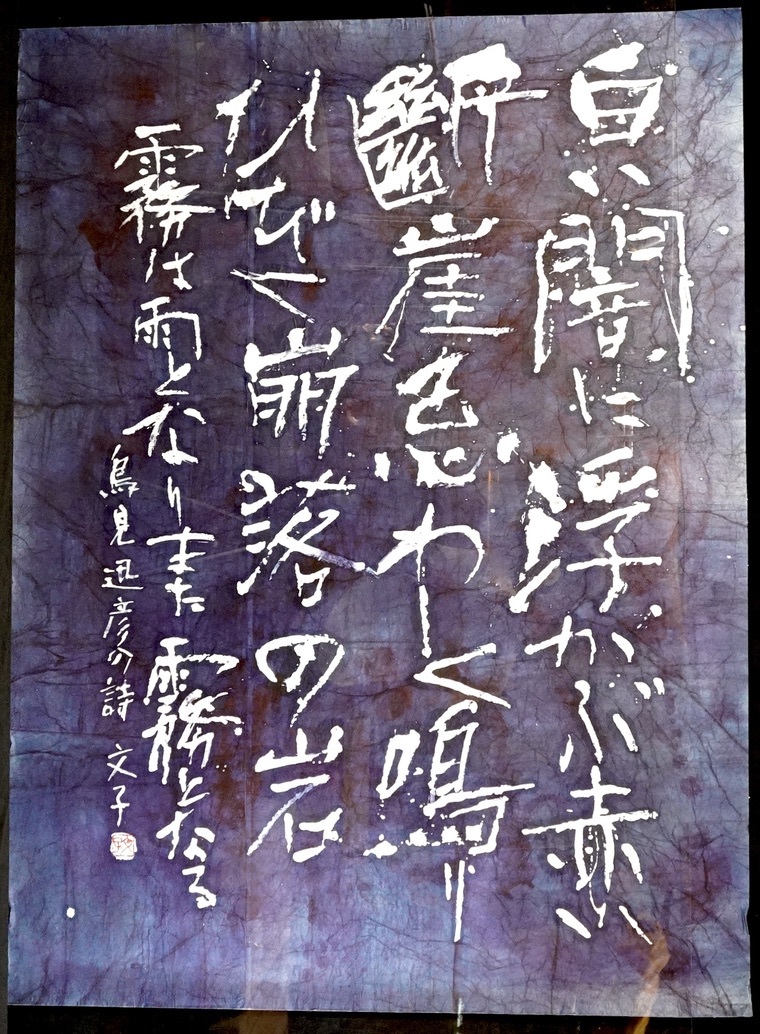 白い闇に浮かぶ赤い
斷崖急わしく鳴り
ひびく崩落の岩
霧は雨となりまた霧となる
鳥見迅彦の詩 文子